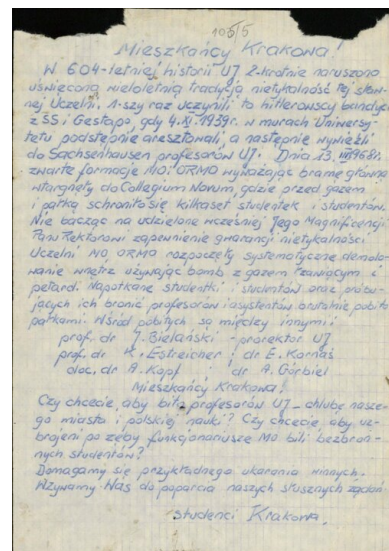 105/5
Mieszkańcy Krakowa!
W 604-letniej historii UJ 2-krotnie naruszono
uświęconą wieloletnią tradycją nietykalność tej sław-
nej Uczelni. 1-szy raz uczynili to hitlerowscy bandyci
z SS i Gestapo gdy 4.XI.1939r. w murach Uniwersy-
tetu podstępnie aresztowali, a następnie wywieźli
do Sachsenhausen profesorów UJ. Dnia 13.III1968r.
zwarte formacje MO, ORMO wyważając bramę główną
wtargnęły do Collegium Novum, gdzie przed gazem
i pałką schroniło się kilkaset studentek i studentów.
Nie bacząc na udzielone wcześniej Jego Magnificencji
Panu Rektorowi zapewnienie gwarancji nietykalności
Uczelni MO, ORMO rozpoczęły systematyczne demolo-
wanie wnętrz używając bomb z gazem łzawiącym i
petard. Napotkane studentki i studentów oraz próbu-
jących ich bronić profesorów i asystentów brutalnie pobito
pałkami. Wśród pobitych są między innymi:
prof. dr J. Bielański - prorektor UJ
prof. dr K. Estreicher ; dr E. Kornaś
doc. dr A. Kopf ; dr A. Görbiel
Mieszkańcy Krakowa!
Czy chcecie, aby bito profesorów UJ - chlubę nasze-
go miasta i polskiej nauki? Czy chcecie, aby uz-
brojeni po zęby funkcjonariusze MO bili bezbron-
nych studentów?
Domagamy się przykładnego ukarania winnych.
Wzywamy Was do poparcia naszych słusznych żądań
studenci Krakowa.